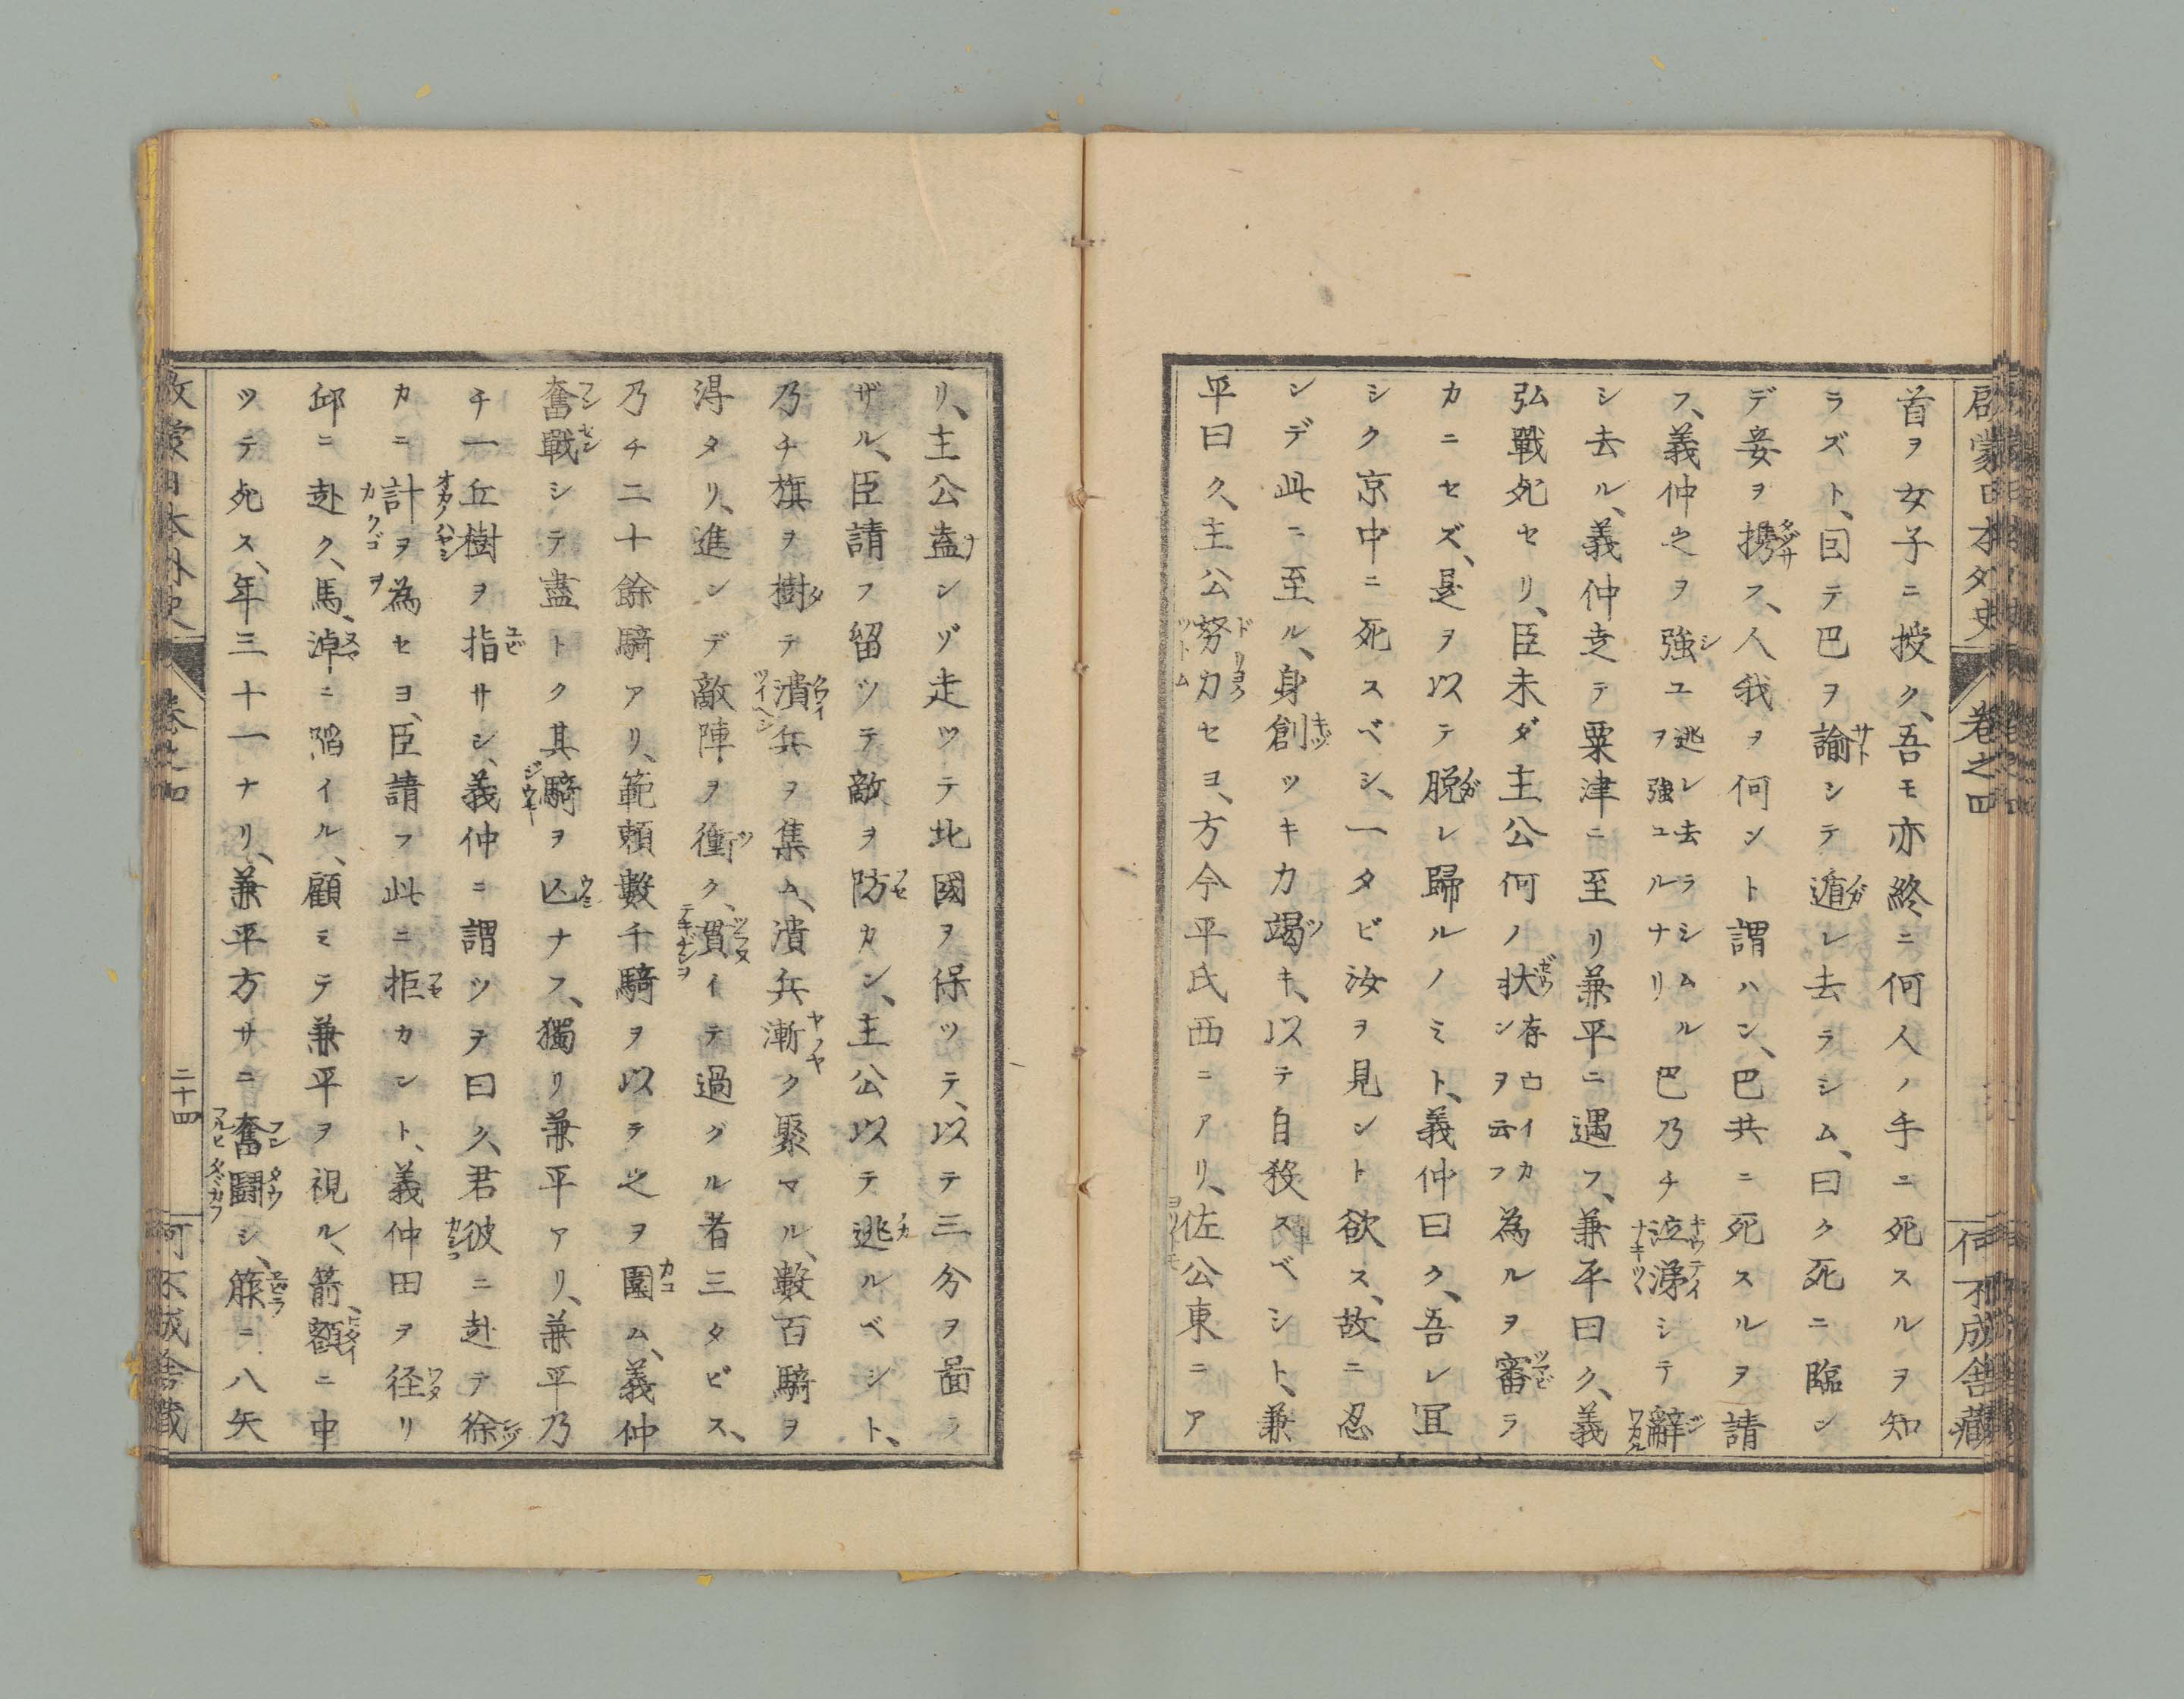 啓蒙日本外史 卷之四 何不成舎藏
首ヲ女子ニ授ク、吾モ亦終ニ何人ノ手ニ死スルヲ知
ラズト、因テ巴ヲ諭シテ遁レ去ラシム、曰ク死ニ臨ン
デ妾ヲ携フ、人我ヲ何ント謂ハン、巴共ニ死スルヲ請
フ、義仲之ヲ強ユ逃レ去ラシムルヲ強ユルナリ巴乃チ泣涕シテ辭
シ去ル、義仲走テ粟津ニ至リ兼平ニ遇フ、兼平曰ク、義
弘戰死セリ、臣未ダ主公何ノ状存亡イカンヲ云フ為ルヲ審ラ
カニセズ、是ヲ以テ脱レ歸ルノミト、義仲曰ク、吾レ宜
シク京中ニ死スベシ、一タビ汝ヲ見ント欲ス、故ニ忍
ンデ此ニ至ル、身創ツキ力竭キ、以テ自殺スベシト、兼
平曰ク、主公努力セヨ、方今平氏西ニアリ、佐公東ニア
リ、主公盍ンゾ走ツテ北國ヲ保ツテ、以テ三分ヲ啚ラ
ザル、臣請フ留ツテ敵ヲ防カン、主公以テ逃ルベシト、
乃チ旗ヲ樹テ潰兵ヲ集ム、潰兵漸ク聚マル、數百騎ヲ
得タリ、進ンデ敵陣ヲ衝ク、貫イテ過グル者三タビス、
乃チ二十餘騎アリ、範頼數千騎ヲ以テ之ヲ圍ム、義仲
奮戰シテ盡トク其騎ヲ亡ナフ、獨リ兼平アリ、兼平乃
チ一丘樹ヲ指サシ、義仲ニ謂ツテ曰ク、君彼ニ赴テ徐
カニ計ヲ為セヨ、臣請フ此ニ拒カント、義仲田ヲ径リ
邱ニ赴ク、馬、淖ニ陷イル、顧ミテ兼平ヲ視ル、箭、額ニ中
ツテ死ス、年三十一ナリ、兼平方サニ奮鬪シ、箙ニ八矢
啓蒙日本外史 卷之四 二十四 何不成舎藏